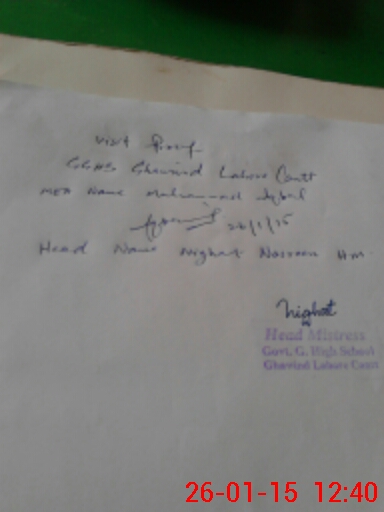 Visit Proof
GGHS Ghavind Lahore Cantt
MEA Name Muhammad Iqbal
26/1/15
Head Name Nighat Nasreen HM.
Nighat
Head Mistress
Govt. G. High School
Ghavind Lahore Cantt
26-01-15 12:40